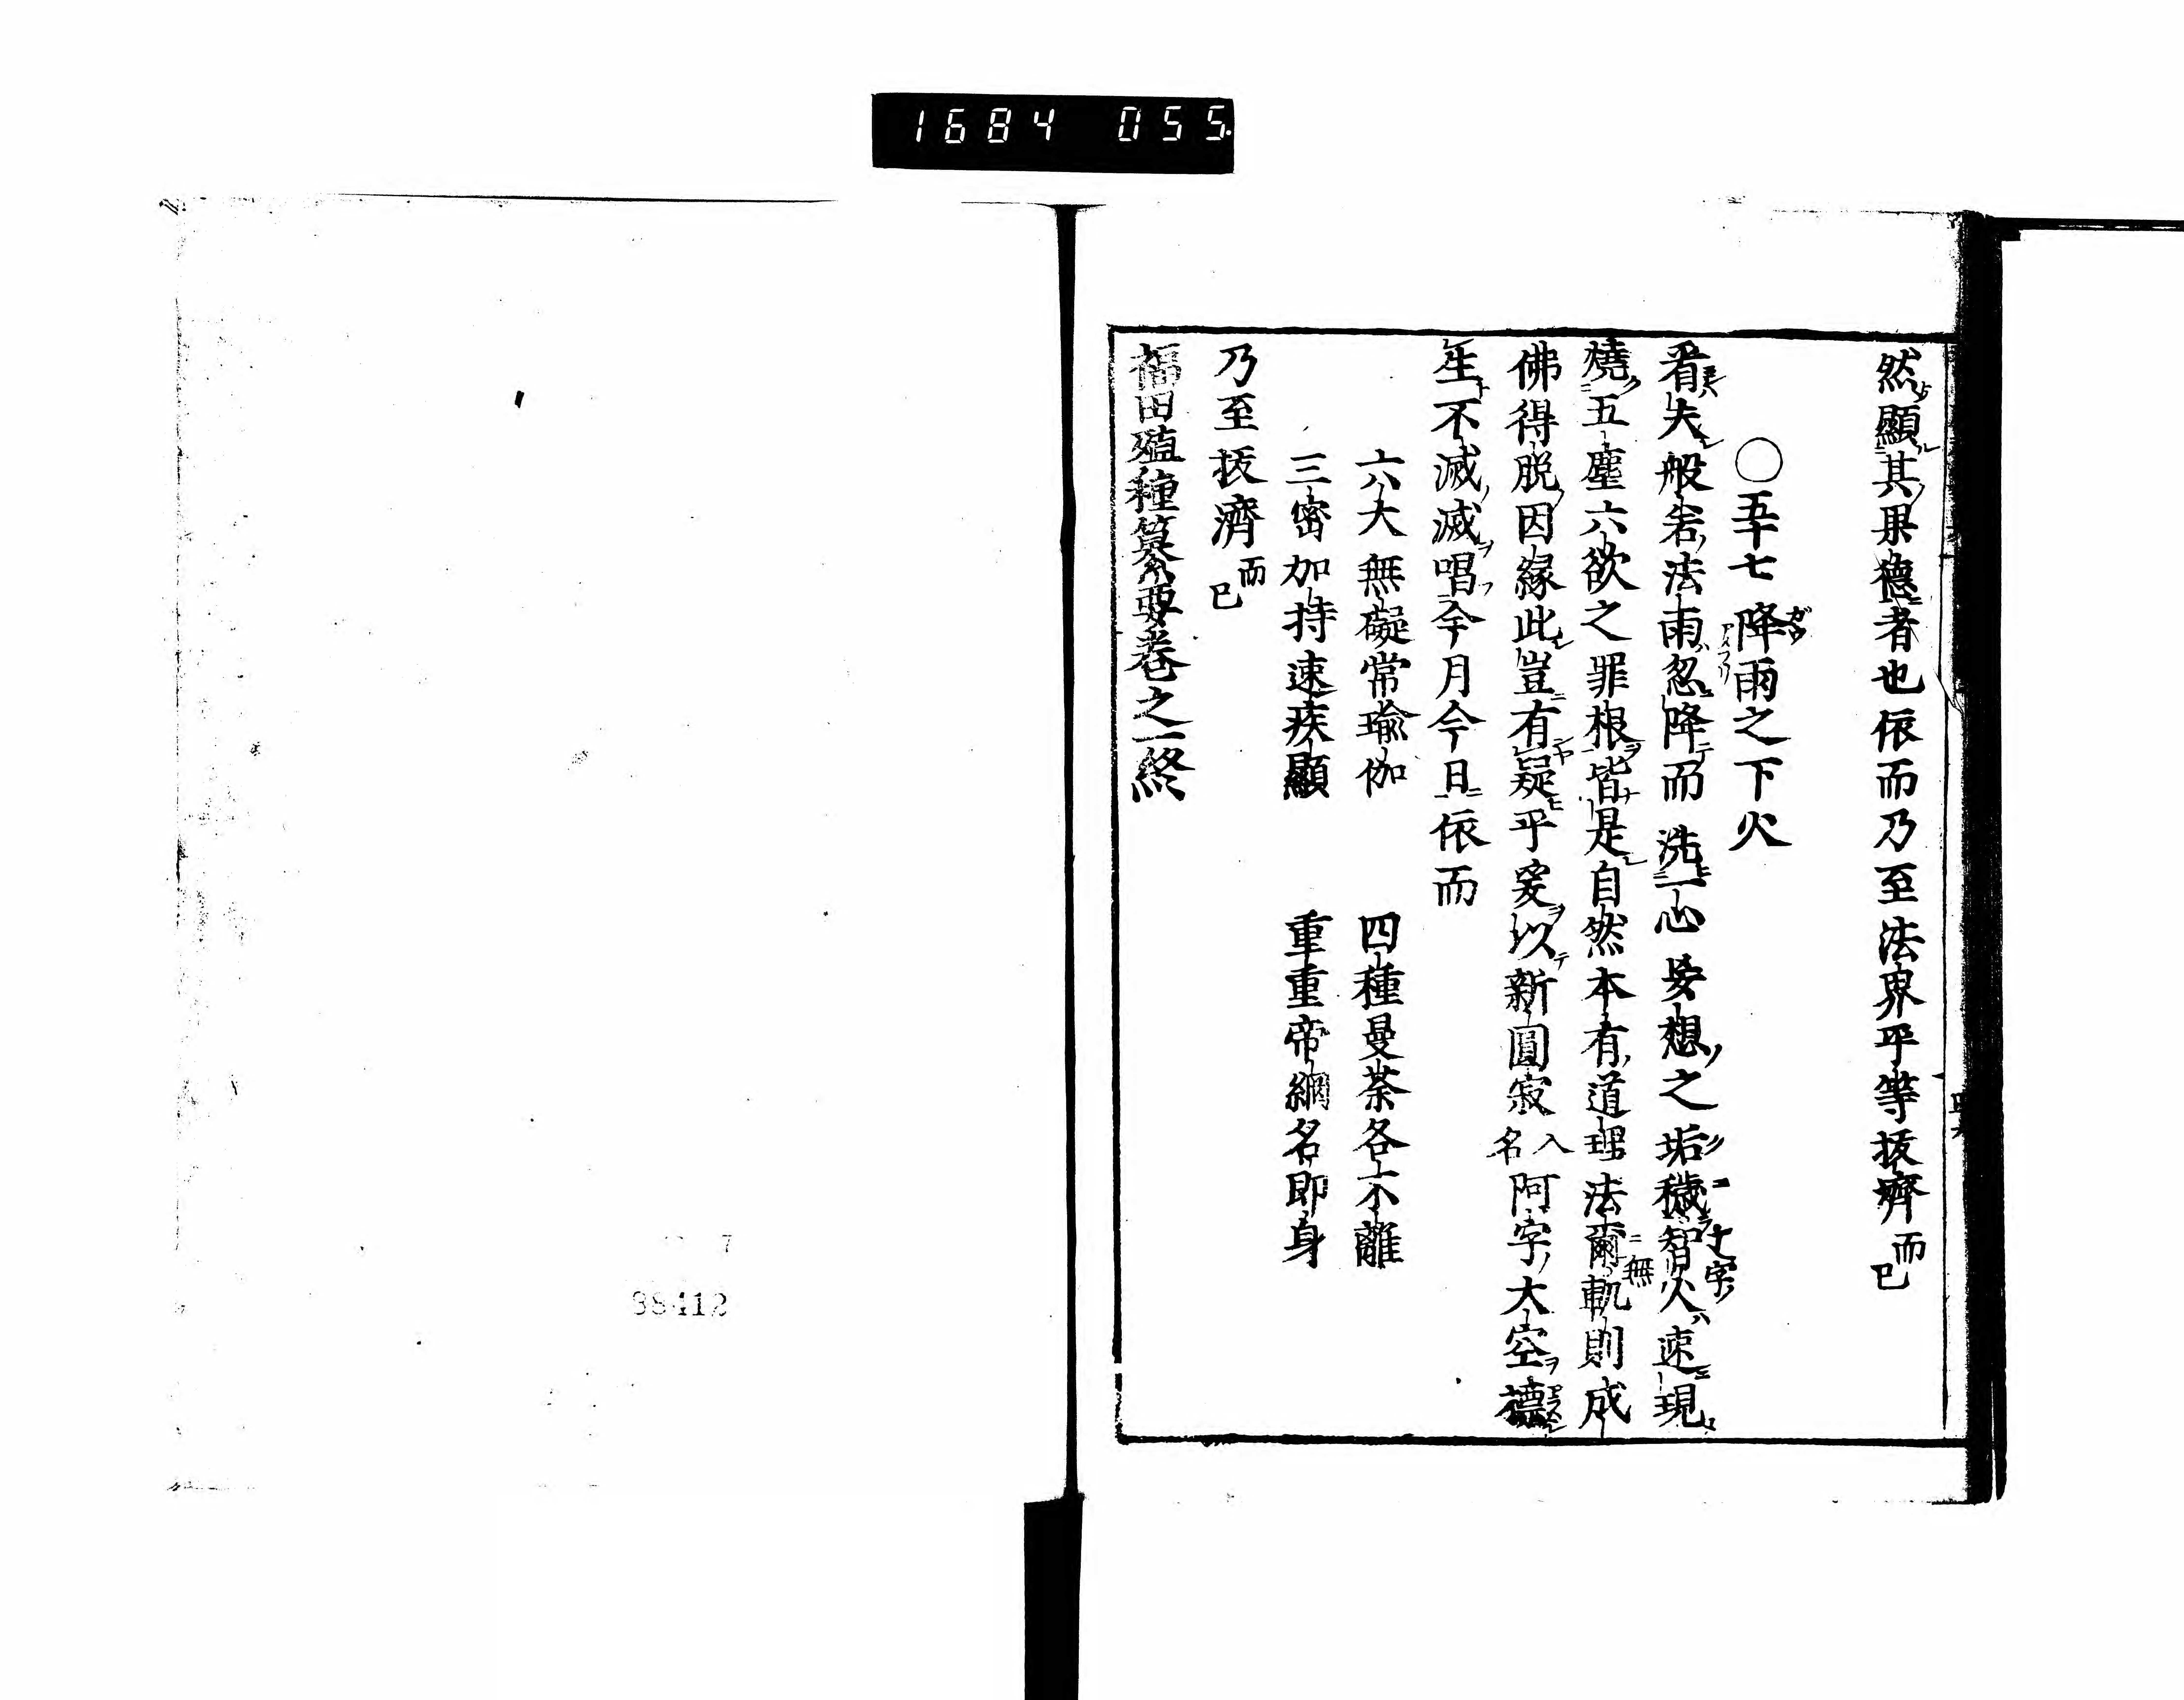 1684 055.
然顯其果德者也依而乃至法界平等抜濟而已
○五十七降雨之下火
看夫般若法雨忽降而洗一心妄想之垢穢智火速現
燒五塵六欲之罪根皆是自然本有道理法爾軌則成
佛得脱因縁此豈有疑乎爰以新圓寂入名阿字大空德
生不滅滅唱今月今日依而
六大無礙常瑜伽　四種曼荼各不離
三密加持速疾顯　重重帝網名即身
乃至抜濟而已
福田殖種纂要卷之一終
88412